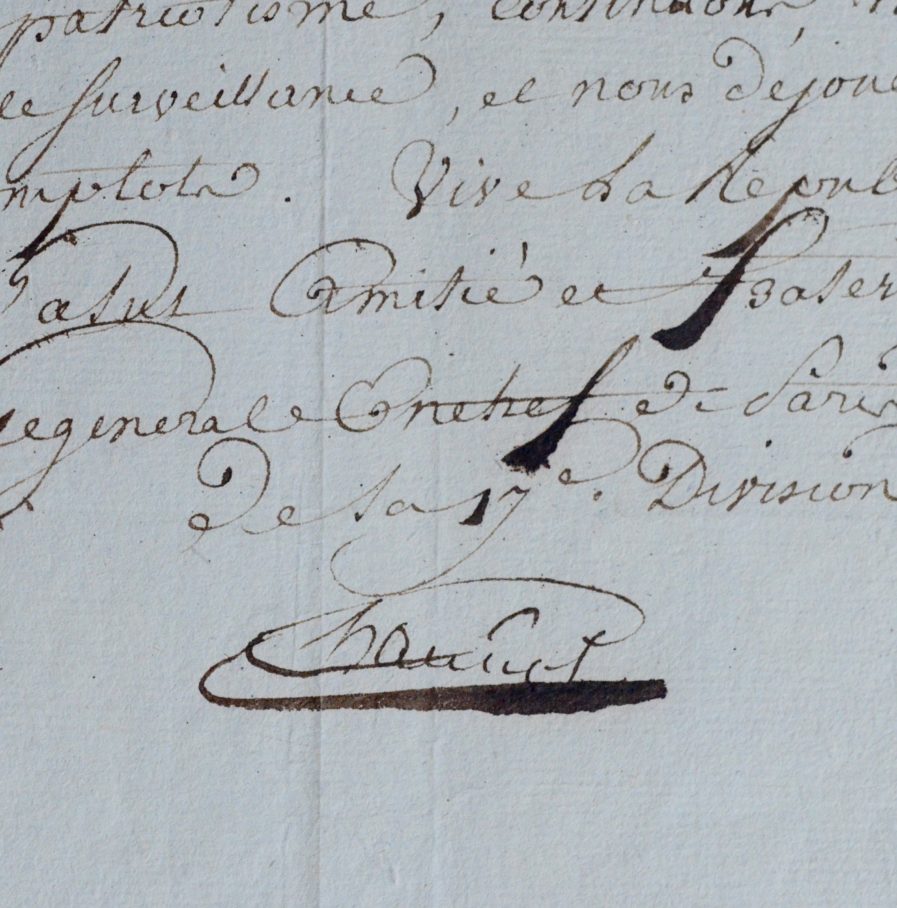 patriotisme, continuons, n
le surveillance, et nous déjoue
mplots. Vive la Républ
Salut Amitié et frater
Le general Enchef de Paris
De la 17e. Division